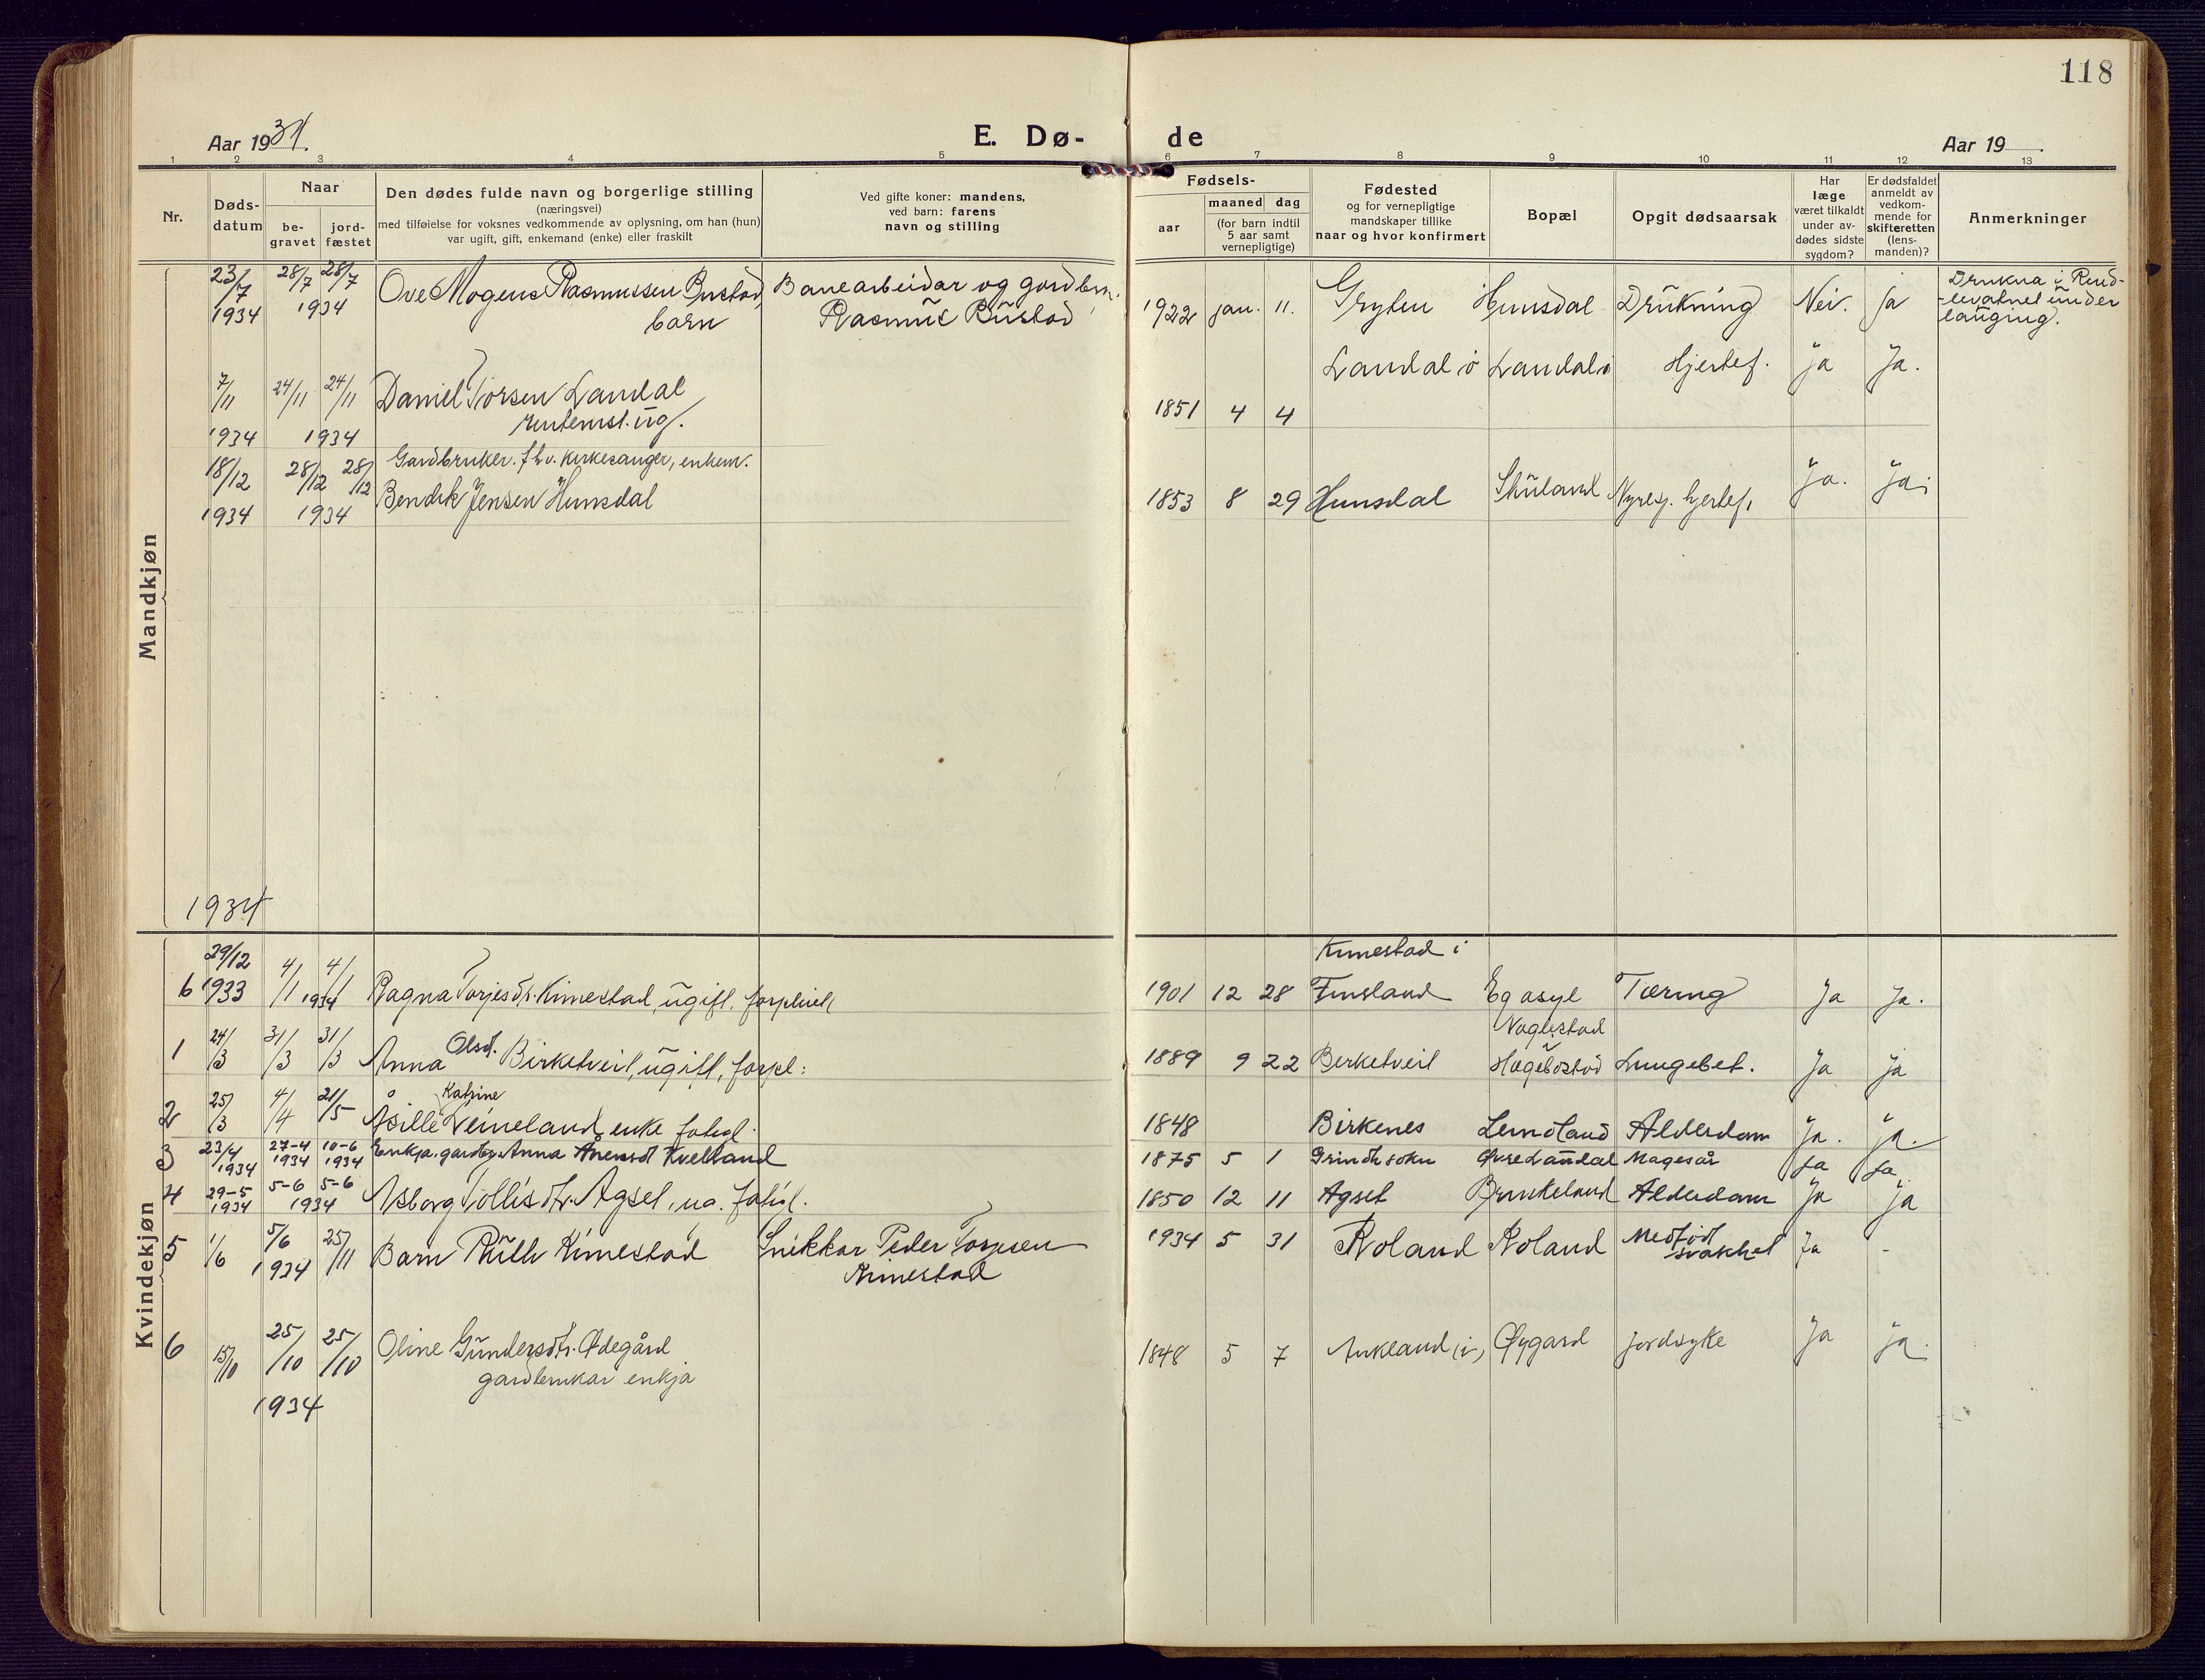 118
Aar 1934.
E. Dø-
de
Aar 19
1 2 3 4 5 6 7 8 9 10 11 12 13
Nr.
Døds-
datum
Naar
be-
gravet
jord-
fæstet
Den dødes fulde navn og borgerlige stilling
(næringsvei)
med tilføielse for voksnes vedkommende av oplysning, om han (hun)
var ugift, gift, enkemand (enke) eller fraskilt
Ved gifte koner: mandens,
ved barn: farens
navn og stilling
Fødsels-
aar
maaned dag
(for barn indtil
5 aar samt
vernepligtige)
Fødested
og for vernepligtige
mandskaper tillike
naar og hvor konfirmert
Bopæl
Opgit dødsaarsak
Har
læge
været tilkaldt
under av-
dødes sidste
sygdom?
Er dødsfaldet
anmeldt av
vedkom-
mende for
skifteretten
(lens-
manden)?
Anmerkninger
Mandkjøn
23/7 28/7 28/7 Ove Mogens Rasmussen Bustad, Banearbeidar og gardbr.
1934 1934 barn Rasmus Bustad
1922 jan. 11. Gryten Hunsdal Drukning Nei. ja
Drukna i
-levatnet under
lauging.
7/11 24/11 24/11 Daniel Torsen Landal
ug.
1934 1934
Landal i Landal i Hjertef. ja Ja.
1851 4 4
Gardbruker. fhv. kirkesanger, enkem.
18/12 28/12 28/12 Bendik Jensen Hunsdal
1934 1934
1853 8 29 Hunsdal Skuland Nyresj. hjertef. Ja. Ja.
1934
Kvindekjøn
29/12
6 1933 4/1 4/1 1934 Ragna Torjesdt. Kimestad, ugift, forpleiet
Kimestad i
1901 12 28 Finsland Eg asyl Tæring Ja Ja.
1 24/3 31/3 31/3 Anna Olsd. Birketveit, ugift, forpl:
Vogestad
1889 9 22 Berketveit Hægebostad Lungebet. Ja Ja
Katrine
2 25/3 4/4 21/5 Åsille Veineland, enke fatigl.
1848 Birkenes Lendland Alderdom Ja. Ja.
3 23/4 1934 27-4 1934 10-6 1934 Enkja. gardbr. Anna Ånensdt Kvelland
1875 5 1 Grindh sokn Øvre Landal Magesår Ja Ja
4 29-5 1934 5-6 5-6 1934 Asborg Tollisdtr. Agset, ug. fatigl.
1850 12 11 Agset Brunkeland Alderdom Ja Ja
5 1/6 5/6 25/11 1934 Barn Ruth Kimestad Snikkar Peder Torjusen
Kimestad
1934 5 31 Roland Roland Medfødt
svakhet Ja -
6 15/10 25/10 25/10 Oline Gundersdtr. Ødegård
gardbrukar enkja
1934
1848 5 7 Aukland (i) Øygard Jordsyke Ja ja.